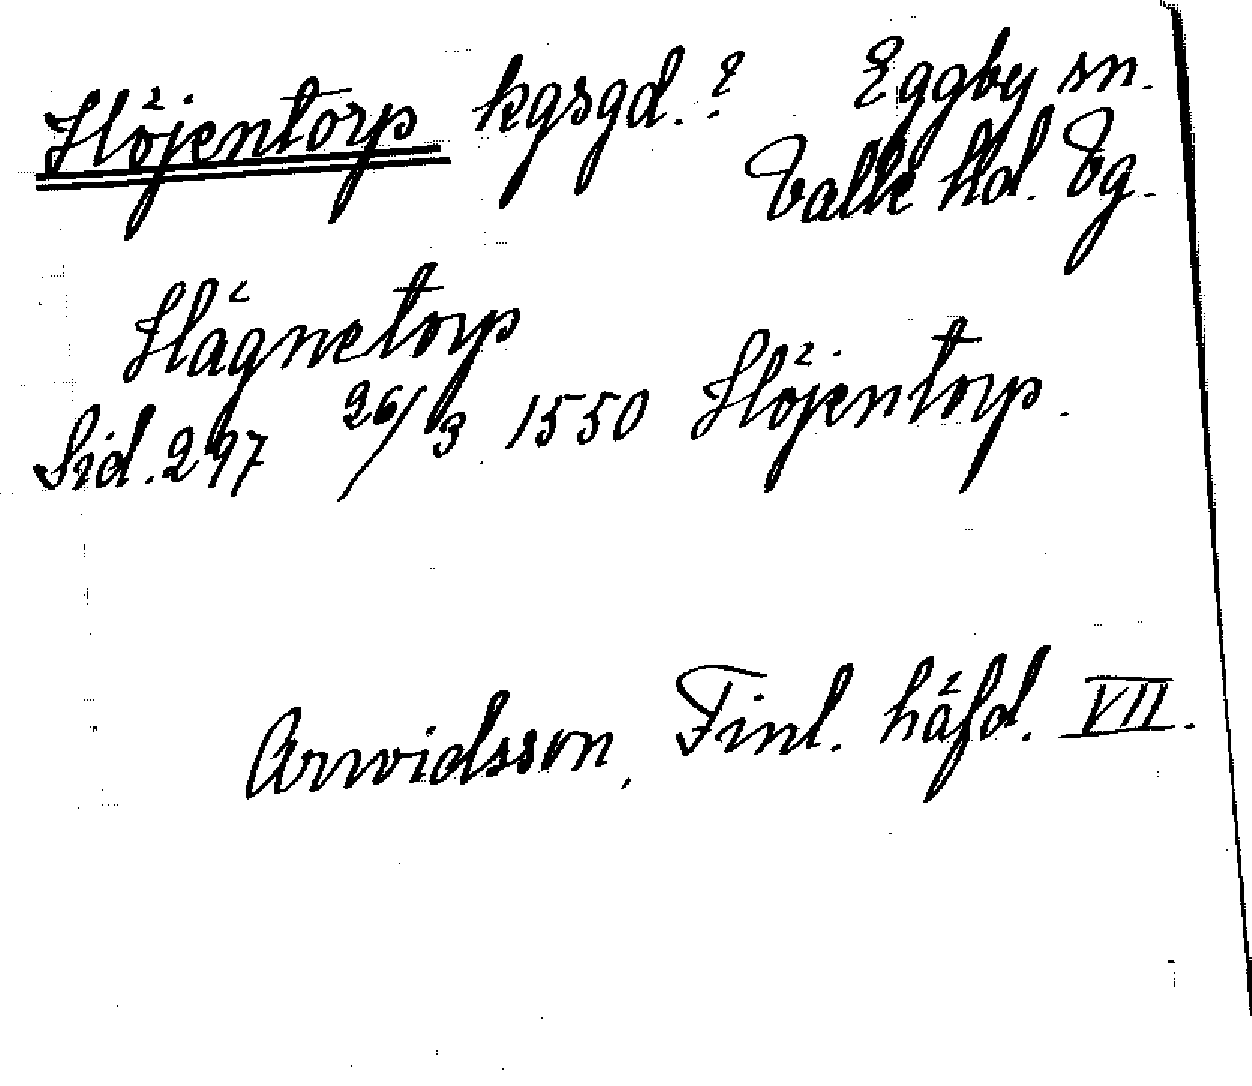 Höjentorp kgsgd.? Eggby sn.
Valle Hd. Vg.
Hägnetorp
Sid. 297 26/3 1550 Höjentorp.
Arwidsson, Finl. häfd. VII.